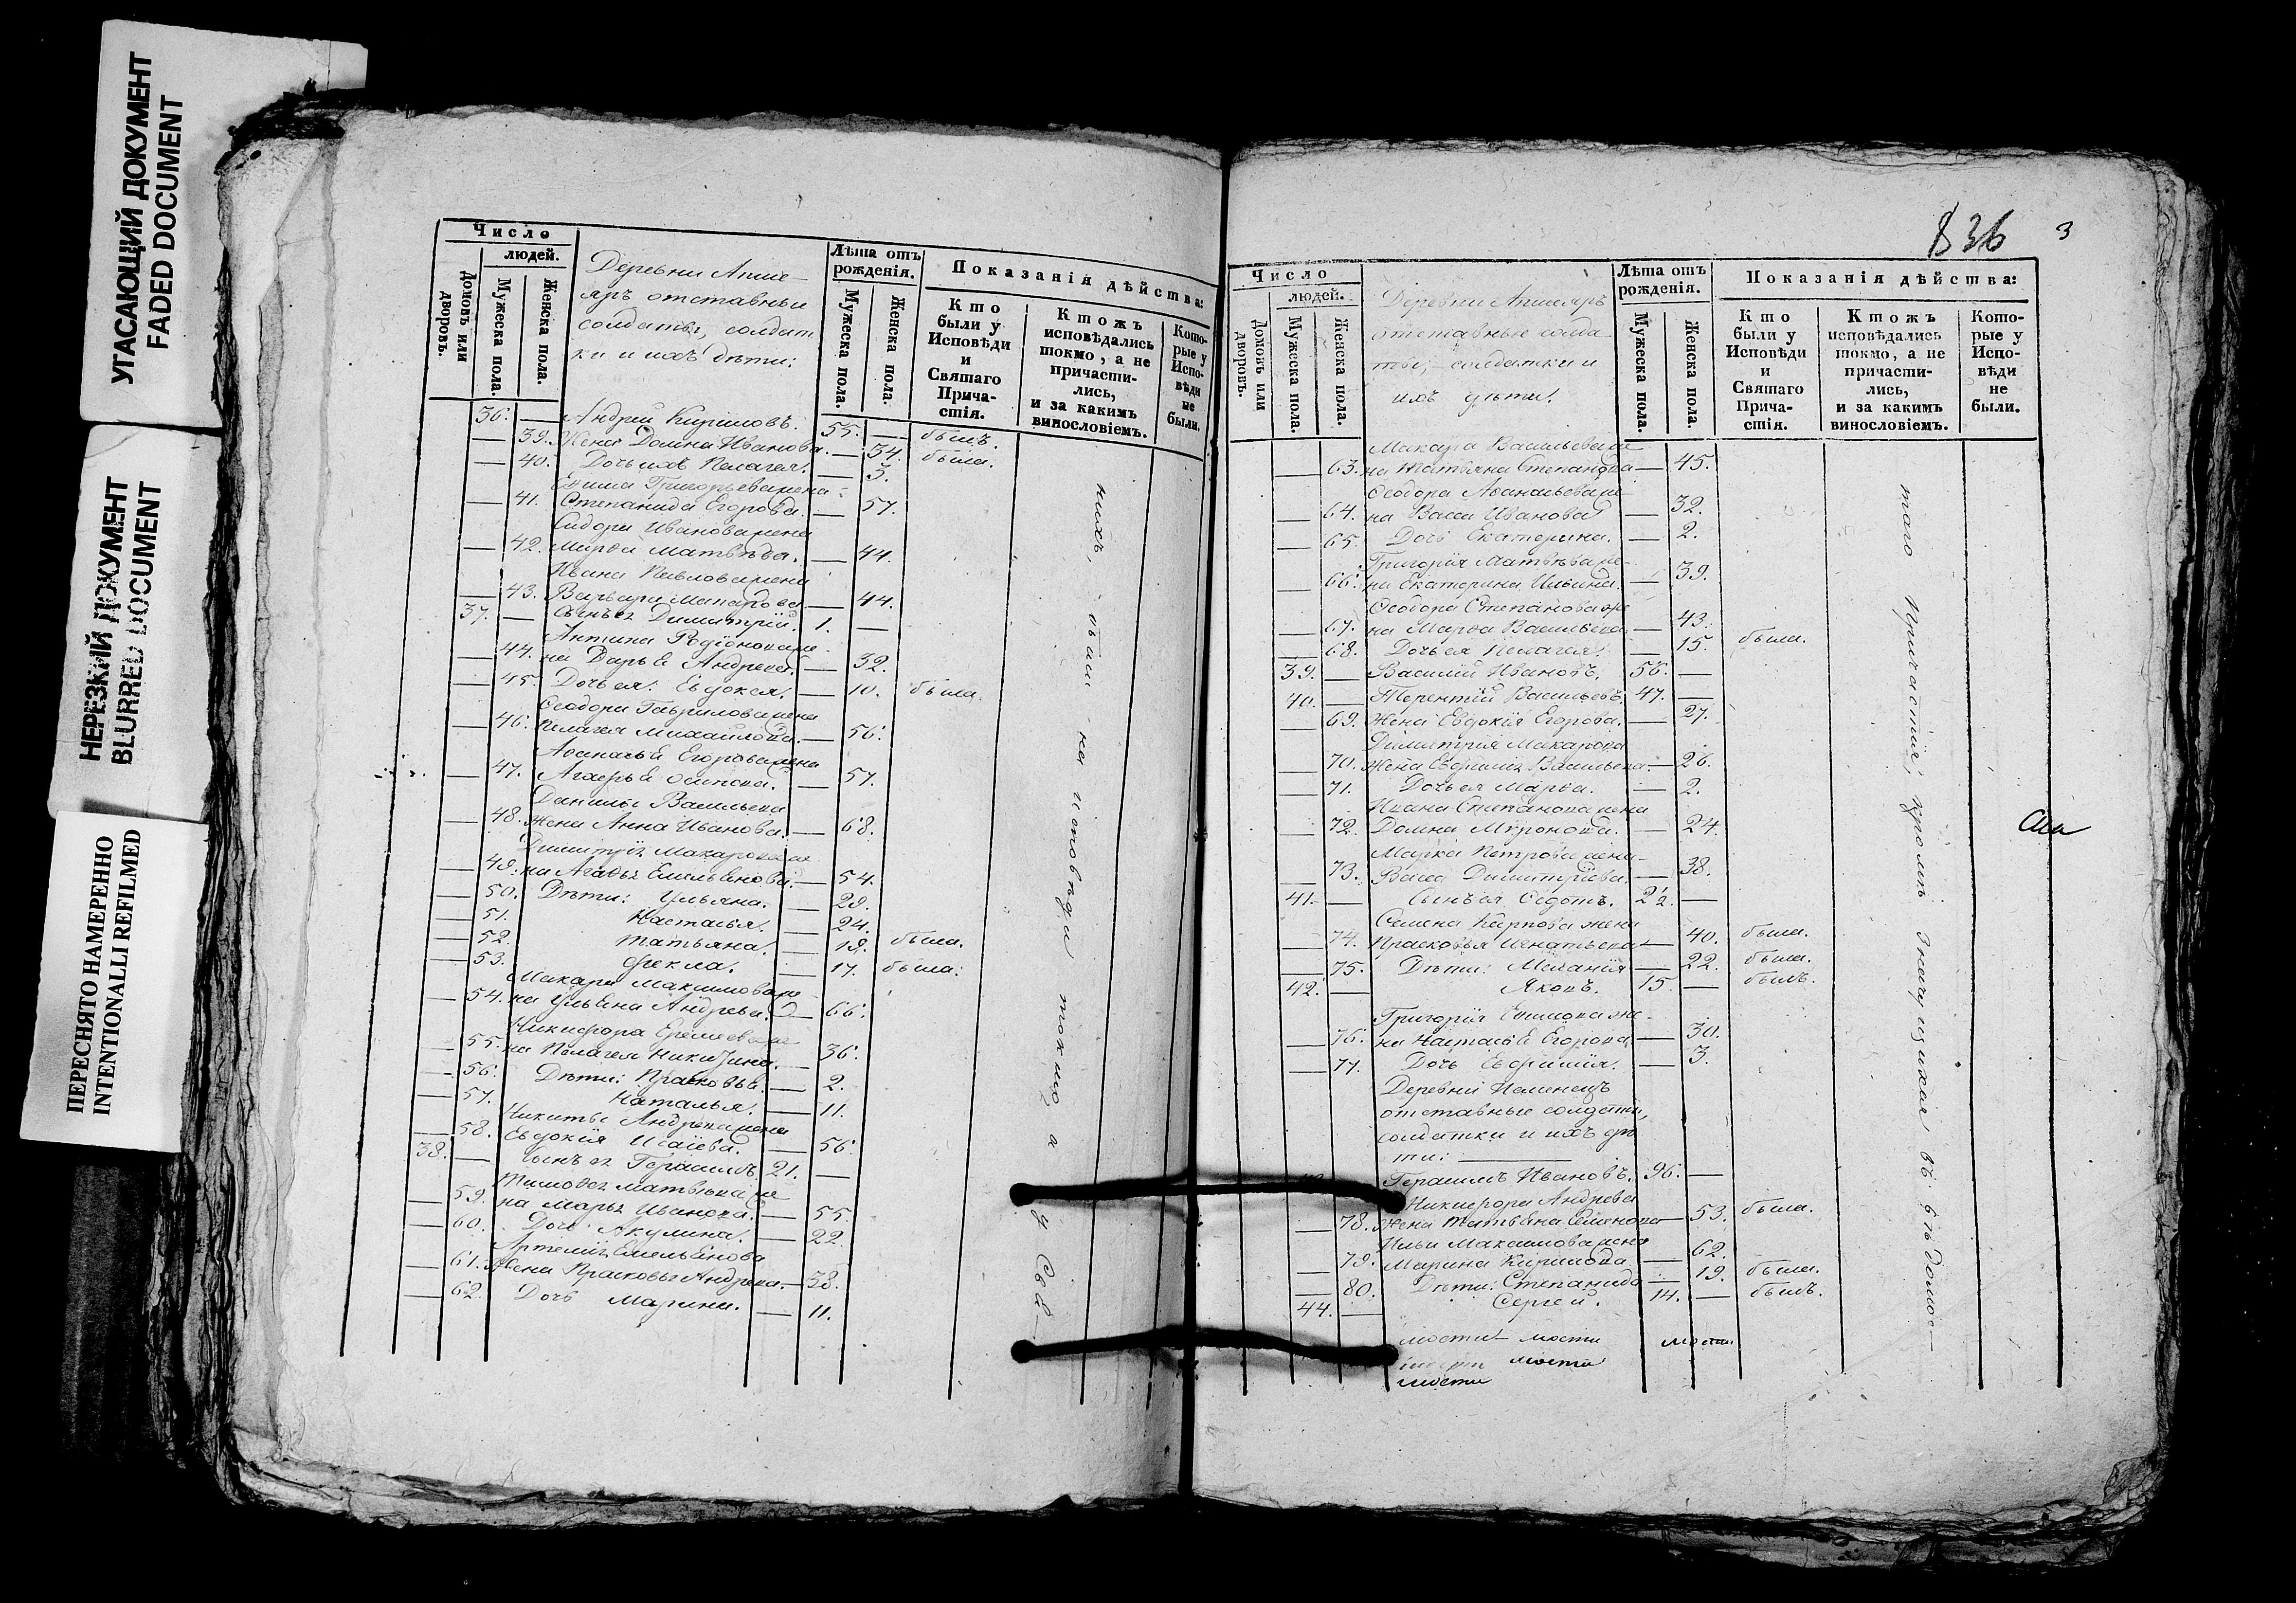 УГАСАЮЩИЙ ДОКУМЕНТ
FADED DOCUMENT
НЕРЕЗКИЙ ДОКУМЕНТ
BLURRED DOCUMENT
ПЕРЕСНЯТО НАМЕРЕННО
INTENTIONALLI REFILMED
Число
людей.
Домовъ или дворовъ.
Мужеска пола.
Женска пола.
Деревни Апше-
яръ отставныи
солдаты, солдат
ки и ихъ дѣти:
Лѣта отъ рожденія.
Мужеска пола.
Женска пола.
Показанія дѣйства:
Кто были у Исповѣди и Святаго Прича-стія.
Ктожъ исповѣдались токмо, а не причасти-лись, и за какимъ винословіемъ.
Кото-рые у Испо-вѣди не были.
36. — Андрей Кириловъ. 55. — былъ.
— 39. Жена Домна Иванова. — 34. была.
— 40. Дочь ихъ Пелагея. — 3.
Григорьева жена
— 41. Степанида Егорова. — 57.
Сидора Иванова жена
— 42. Марѳа Матвѣева. — 44.
Ивана Павлова жена
— 43. Варвара Макарова — 44.
37. — Сынъ ея Димитрій. 1. —
Антипа Родіонова же-
— 44. на Дарья Андреева. — 32.
— 45. Дочь ея Евдокея. — 10. была.
Ѳеодора Гаврилова жена
— 46. Пелагея Михайлова. — 56.
Аѳанасья Егорова жена
— 47. Осипова. — 57.
Данилы Васильева
— 48. жена Анна Иванова. — 68.
Димитрія Макарова же
— 49. на Агафья Емельянова. — 54.
— 50. Дѣти: Ульяна. — 29.
— 51. Настасья. — 24.
— 52. Татьяна. — 19. была.
— 53. Ѳекла. — 17. была.
Макара Максимова же-
— 54. на Ульяна Андреева. — 66.
Никифора Еремеева же
— 55. на Пелагея Никитина. — 36.
— 56. Дѣти: Прасковья. — 2.
— 57. Наталья. — 11.
Никиты Андреева жена
— 58. Евдокія Исаіева. — 56.
38. — Сынъ ея Герасимъ 21. —
Тимоѳея Матвѣева же
— 59. на Марья Иванова. — 55.
— 60. Дочь Акулина. — 22.
Артемія Емельянова
— 61. жена Прасковья Андреева. — 38.
— 62. Дочь Марина. — 11.
нихъ, были на исповѣди токмо, а у Свя
836 3
Число
людей.
Домовъ или дворовъ.
Мужеска пола.
Женска пола.
Деревни Апшеяръ
отставные солда
ты, солдатки и
ихъ дѣти:
Лѣта отъ рожденія.
Мужеска пола.
Женска пола.
Показанія дѣйства:
Кто были у Исповѣди и Святаго Прича-стія.
Ктожъ исповѣдались токмо, а не причасти-лись, и за какимъ винословіемъ.
Кото-рые у Испо-вѣди не были.
Макара Васильева же
— 63. на Татьяна Степанова — 45.
Ѳеодора Аѳанасьева же-
— 64. на Васса Иванова — 32.
— 65. Дочь Екатерина. — 2.
Григорія Матвѣева же-
— 66. на Екатерина Ильина. — 39.
Ѳеодора Степанова же
— 67. на Марѳа Васильева — 43.
— 68. Дочь ея Пелагея. — 15. была.
39. — Василій Ивановъ. 56. —
40. — Терентій Васильевъ. 47. —
— 69. Жена Евдокія Егорова. — 27.
Димитрія Макарова
— 70. Жена Евфимія Васильева. — 26.
— 71. Дочь ея Марѳа. — 2.
Ивана Степанова жена
— 72. Домна Миронова. — 24.
Марка Петрова жена
— 73. Васса Димитріева. — 38.
41. — Сынъ ея Ѳедотъ. 2½. —
Семена Карпова жена
— 74. Прасковья Игнатьева — 40. была.
— 75. Дѣти: Меланія — 22. была.
42. — Яковъ. 15. — былъ.
Григорія Ефимова же-
— 76. на Настасья Егорова — 30.
— 77. Дочь Евфимія. — 3.
Деревни
отставные солдаты,
солдатки и ихъ дѣ
ти:
Герасимъ Ивановъ. 96. —
Никифора Андреева
— 78. Жена Татьяна Семенова — 53. была.
Ильи Максимова жена
— 79. Марина Кирилова — 62.
— 80. Дѣти: Степанида — 19. была.
44. — Сергей. 14. — былъ.
мости мости мости
мости мости
мости
таго Причастія, кромѣ значущихся въ вѣдомо-